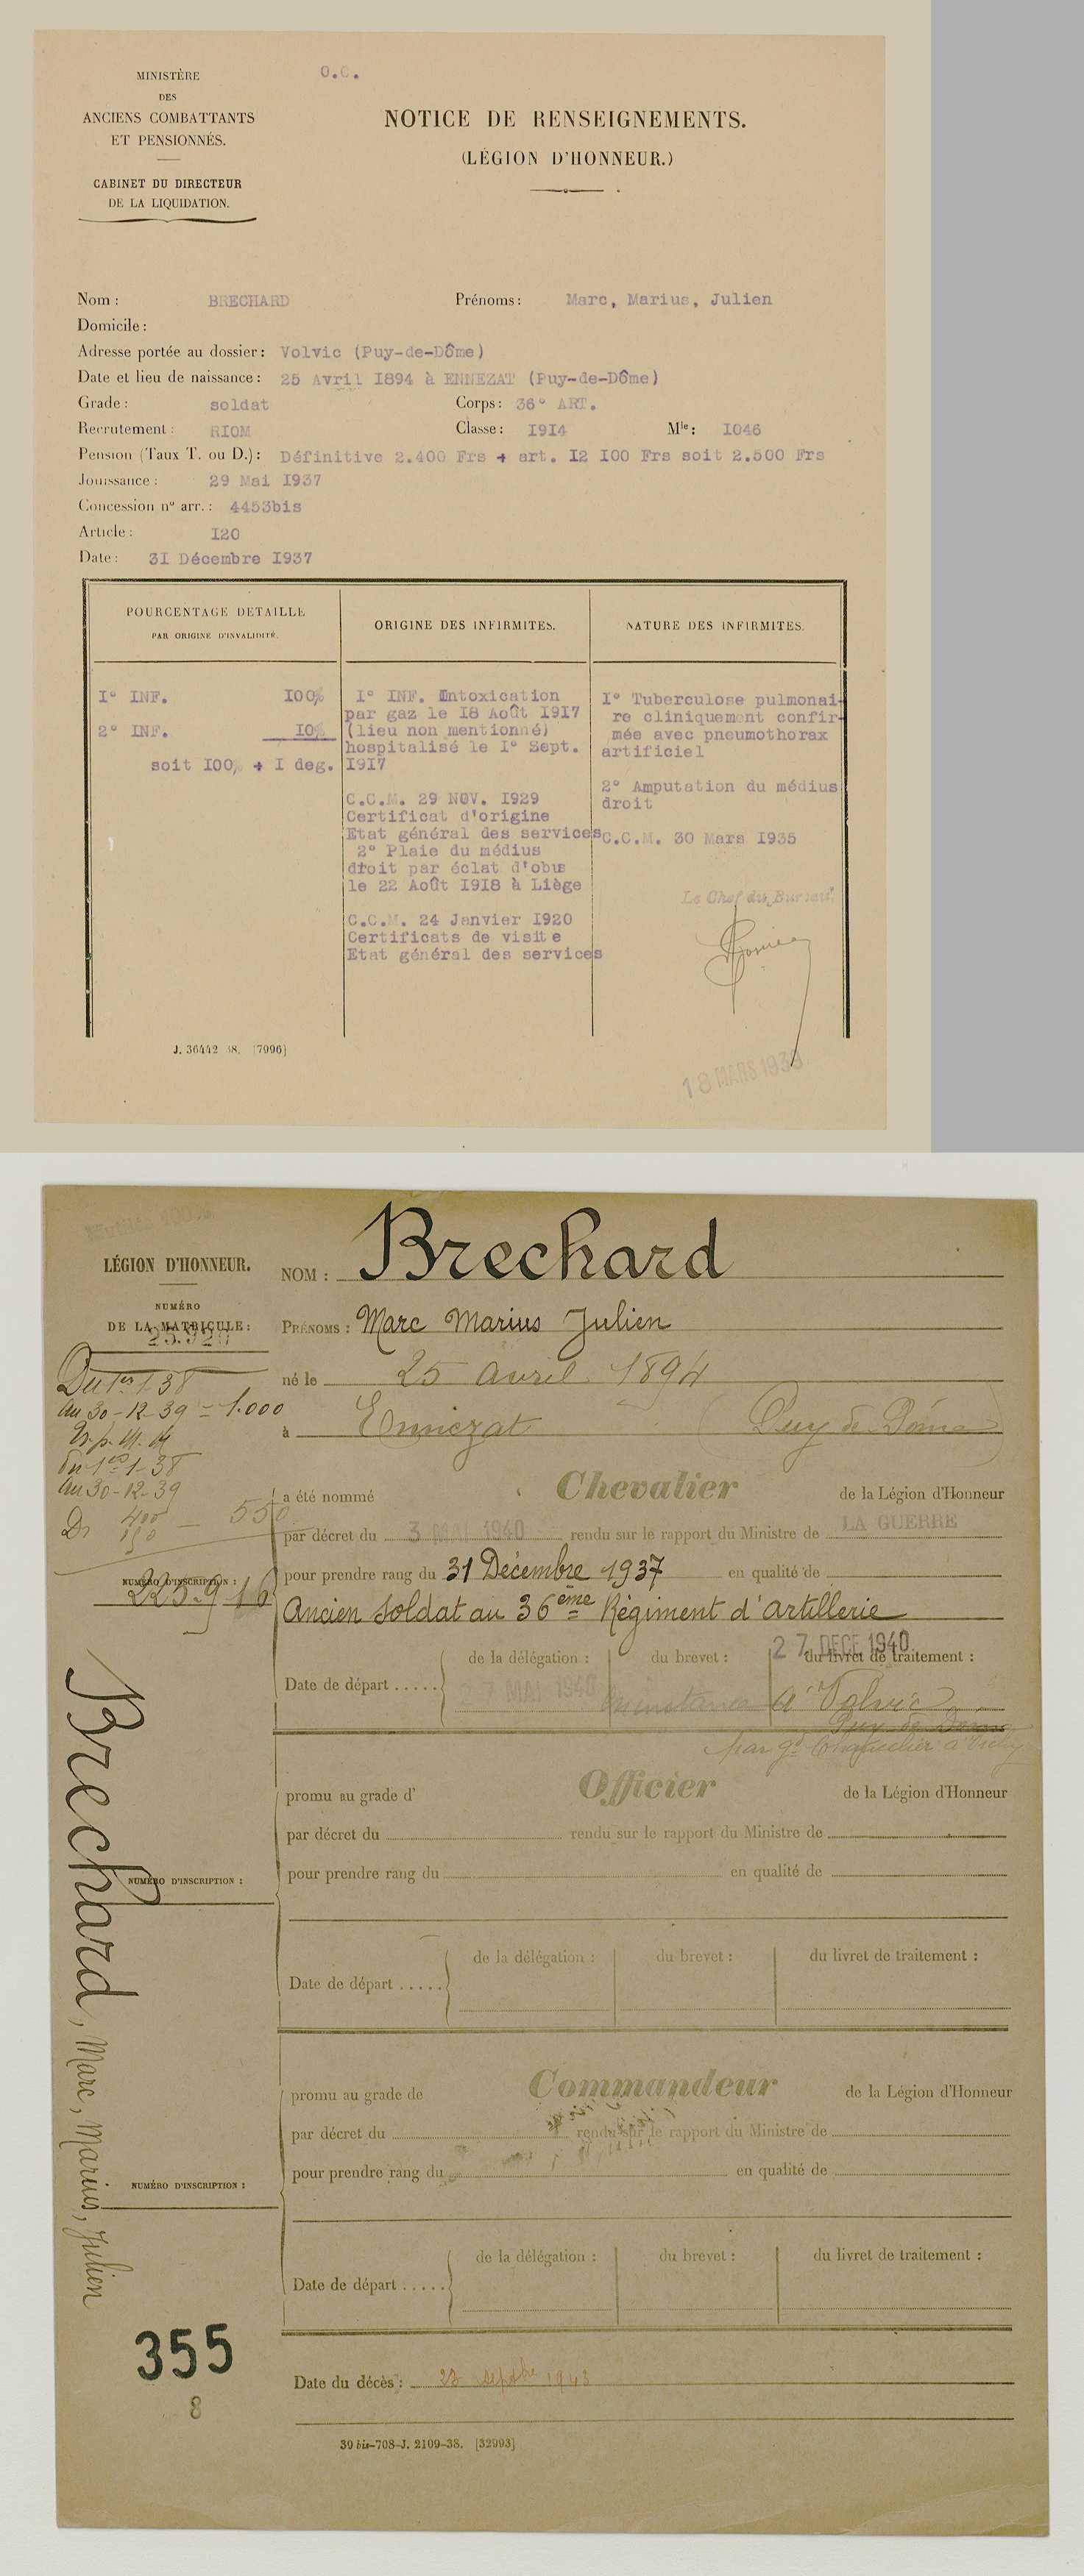 MINISTÈRE
DES
ANCIENS COMBATTANTS
ET PENSIONNÉS.
CABINET DU DIRECTEUR
DE LA LIQUIDATION.
O.C.
NOTICE DE RENSEIGNEMENTS.
(LÉGION D'HONNEUR.)
Nom : BRECHARD Prénoms : Marc, Marius, Julien
Domicile :
Adresse portée au dossier : Volvic (Puy-de-Dôme)
Date et lieu de naissance : 25 Avril I894 à ENNEZAT (Puy-de-Dôme)
Grade : soldat Corps : 36° ART.
Recrutement : RIOM Classe : I9I4 Mle : I046
Pension (Taux T. ou D.) : Définitive 2.400 Frs + art. I2 I00 Frs soit 2.500 Frs
Jouissance : 29 Mai I937
Concession n° arr. : 4453bis
Article : I20
Date : 3I Décembre I937
POURCENTAGE DETAILLÉ
PAR ORIGINE D'INVALIDITÉ.
I° INF. I00%
2° INF. I0%
soit I00% + I deg.
ORIGINE DES INFIRMITES.
I° INF. Intoxication
par gaz le I8 Août I9I7
(lieu non mentionné)
hospitalisé le I° Sept.
I9I7
C.C.M. 29 NOV. I929
Certificat d'origine
Etat général des services
2° Plaie du médius
droit par éclat d'obus
le 22 Août I9I8 à Liège
C.C.M. 24 Janvier I920
Certificats de visite
Etat général des services
NATURE DES INFIRMITES.
I° Tuberculose pulmonai-
re cliniquement confir-
mée avec pneumothorax
artificiel
2° Amputation du médius
droit
C.C.M. 30 Mars I935
Le Chef du Bureau
J. 36442-38. [7096]
18 MARS 1939
LÉGION D'HONNEUR.
NUMÉRO
DE LA MATRICULE :
NOM : Brechard
PRÉNOMS : Marc Marius Julien
né le 25 avril 1894
à Ennezat Puy de Dôme
Du 1er 1-38
au 30-12-39 = 1.000
du 1er-1-38
au 30-12-39
550
a été nommé Chevalier de la Légion d'Honneur
par décret du 3 MAI 1940 rendu sur le rapport du Ministre de LA GUERRE
pour prendre rang du 31 Décembre 1937 en qualité de
NUMÉRO D'INSCRIPTION :
225.916
Ancien soldat au 36ème Régiment d'artillerie
27 DECE 1940
de la délégation : du brevet : du livret de traitement :
Date de départ .....
27 MAI 1940 à Volvic
Puy de Dôme
promu au grade d' Officier de la Légion d'Honneur
par décret du rendu sur le rapport du Ministre de
pour prendre rang du en qualité de
NUMÉRO D'INSCRIPTION :
de la délégation : du brevet : du livret de traitement :
Date de départ .....
promu au grade de Commandeur de la Légion d'Honneur
par décret du rendu sur le rapport du Ministre de
pour prendre rang du en qualité de
NUMÉRO D'INSCRIPTION :
de la délégation : du brevet : du livret de traitement :
Date de départ .....
Brechard, Marc, Marius, Julien
355
8
Date du décès : 1943
39 bis-708-J. 2109-38. [32993]